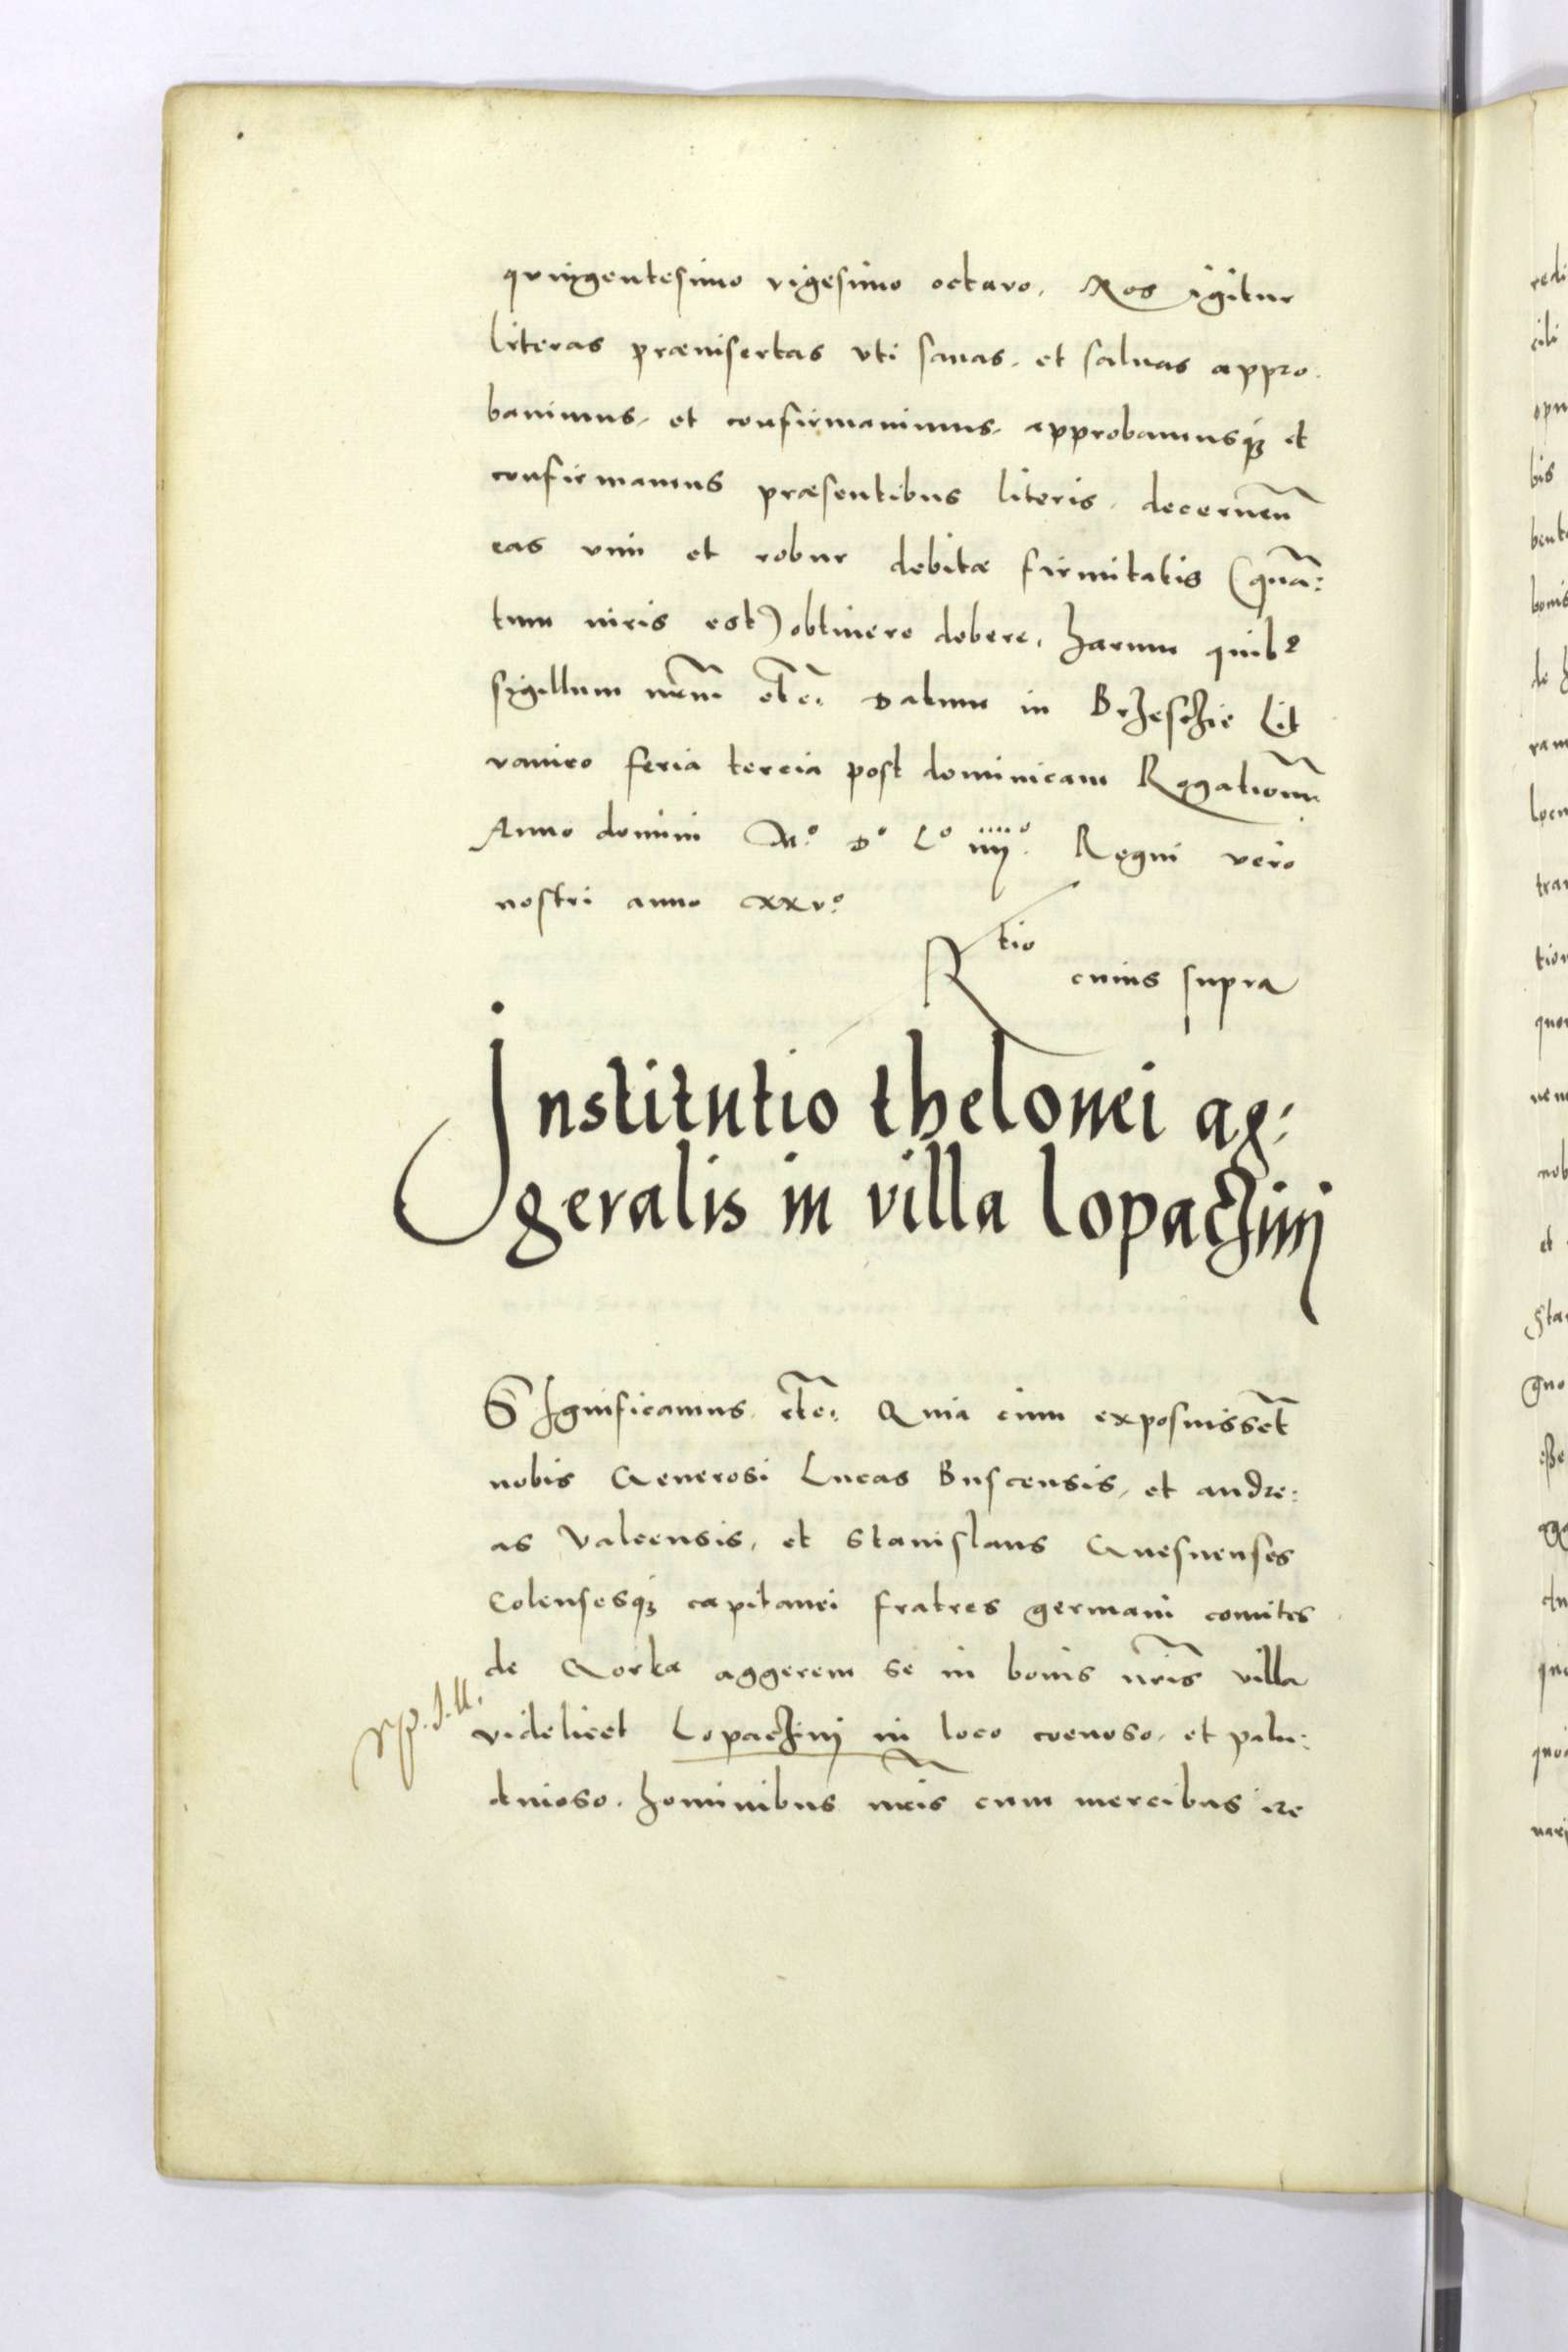 quingentesimo vigesimo octavo. Nos igitur
literas præinsertas vti sanas, et saluas appro-
bauimus, et confirmauimus, approbamusq3 et
confirmamus præsentibus literis, decernen̄
eas vim et robur debitæ firmitatis (quā:
tum iuris est) obtinere debere, harum quib9
sigillum nrm̄ etc̄. Datum in Brzesczie Lit
vanico feria tercia post dominicam Rogationū
Anno domini M.° D° L° iiij.° Regni vero
nostri anno xxv.°
Rtio cuius supra
Institutio thelonei ag:
geralis in villa Lopaczinij
SIgnificamus, etc̄. Quia cum exposuissēt
nobis Generosi Lucas Buscensis, et Andre:
as Valcensis, et Stanislaus Gnesnenses
Colensesq3 capitanei fratres germani comites
de Gorka aggerem se in bonis nr̄is villa
videlicet Lopaczinij in loco coenoso, et palu:
dinoso, hominibus nr̄is cum mercibus ire